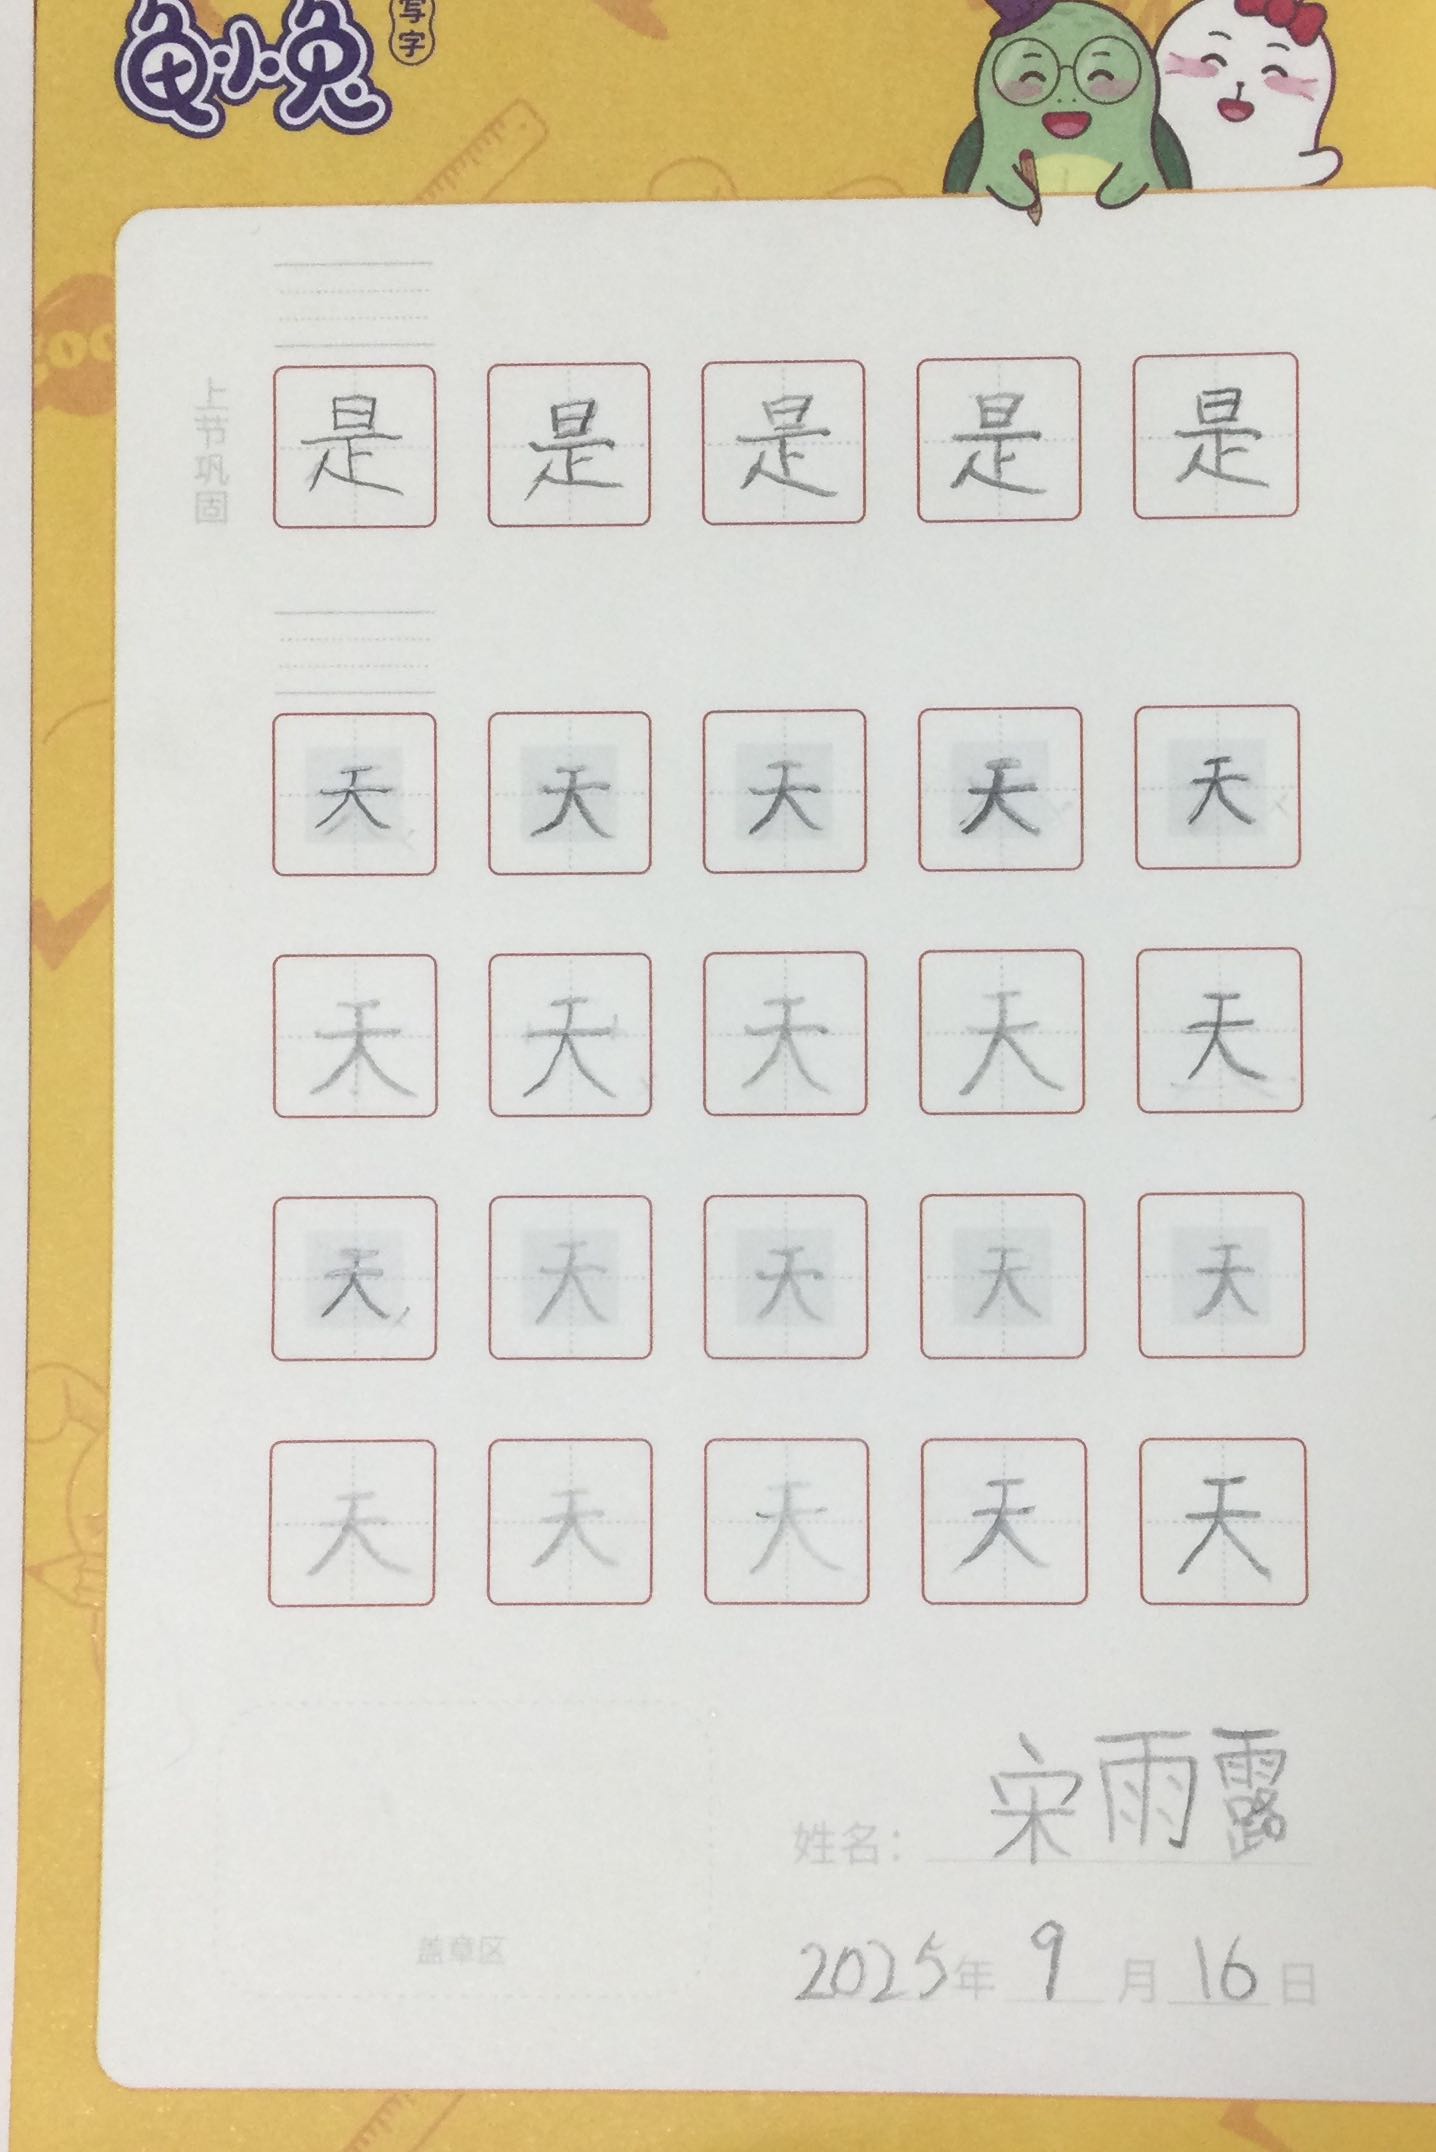 龟小兔
写字
上节巩固
是 是 是 是 是
天 天 天 天 天
天 天 天 天 天
天 天 天 天 天
天 天 天 天 天
姓名: 宋雨露
盖章区
2025年 9 月 16 日